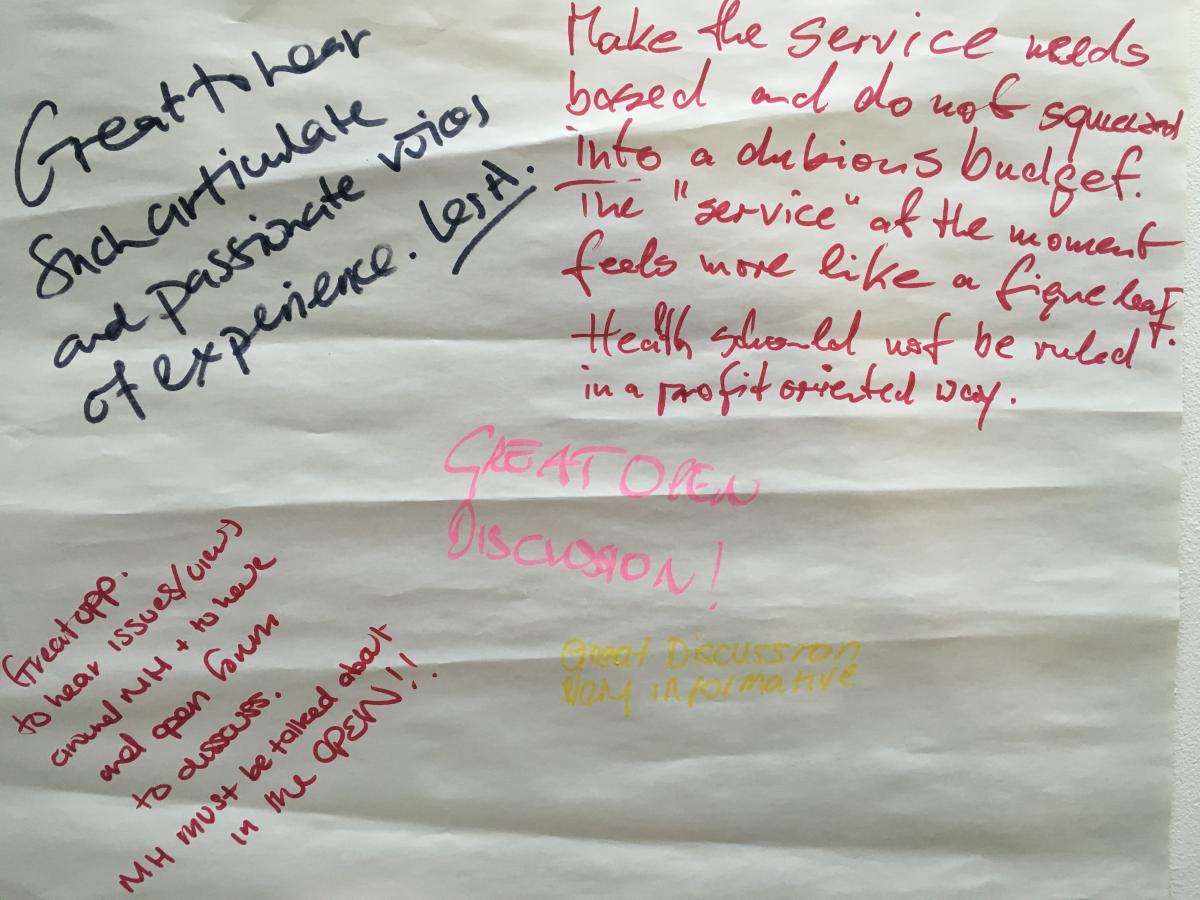 Great to hear
Such articulate
and passionate voices
of experience. Les H.
Make the service needs
based and do not squeezed
into a dubious budget.
The "service" at the moment
feels more like a figue leaf.
Health should not be ruled
in a profit oriented way.
GREAT OPEN
DISCUSSION!
Great Discussion
Very informative
Great opp.
to hear issues/views
around MH + to have
and open forum
to discuss.
MH must be talked about
in the OPEN!!